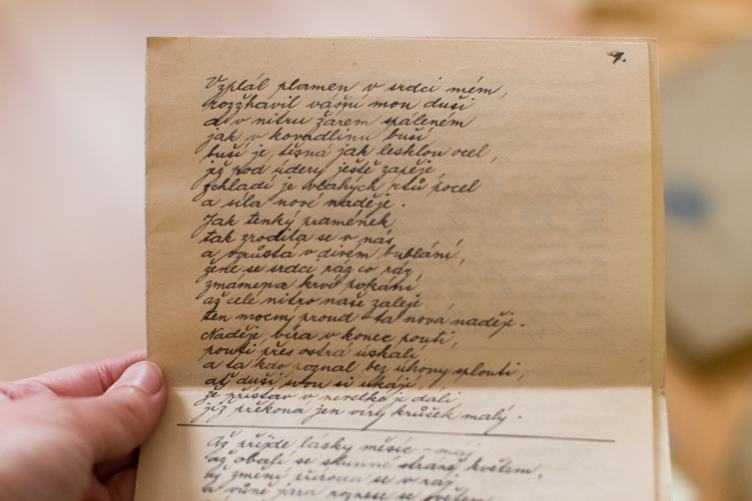 7.
Vzplál plamen v srdci mém,
rozžhavil vášní mou duši
a v nitru žárem spáleném
jak v kovadlinu buší
buší je, těsná jak lesklou ocel,
jež pod údery ještě zapěje,
zchladí je vlahých rtů pocel
a síla nové naděje.
Jak tenký pramének
tak zrodila se v nás
a vzrůstá v divém bublání,
žene se srdcí ráz co ráz,
zmámena krve pokání,
až celé nitro naše zaleje,
ten mocný proud - ta nová naděje.
Naděje, víra v konec pouti,
pouti přes ostrá úskalí,
a ta kdo poznal bez úhony splouti,
ať duši svou si ukáje,
že přístav v nevelké je dáli
jíž překoná jen víry krůček malý.
Až přijde lásky měsíc - máj
až obalí se skvoucně stráně květem,
by změní příroda se v ráj
a vůně jara roznese se světem